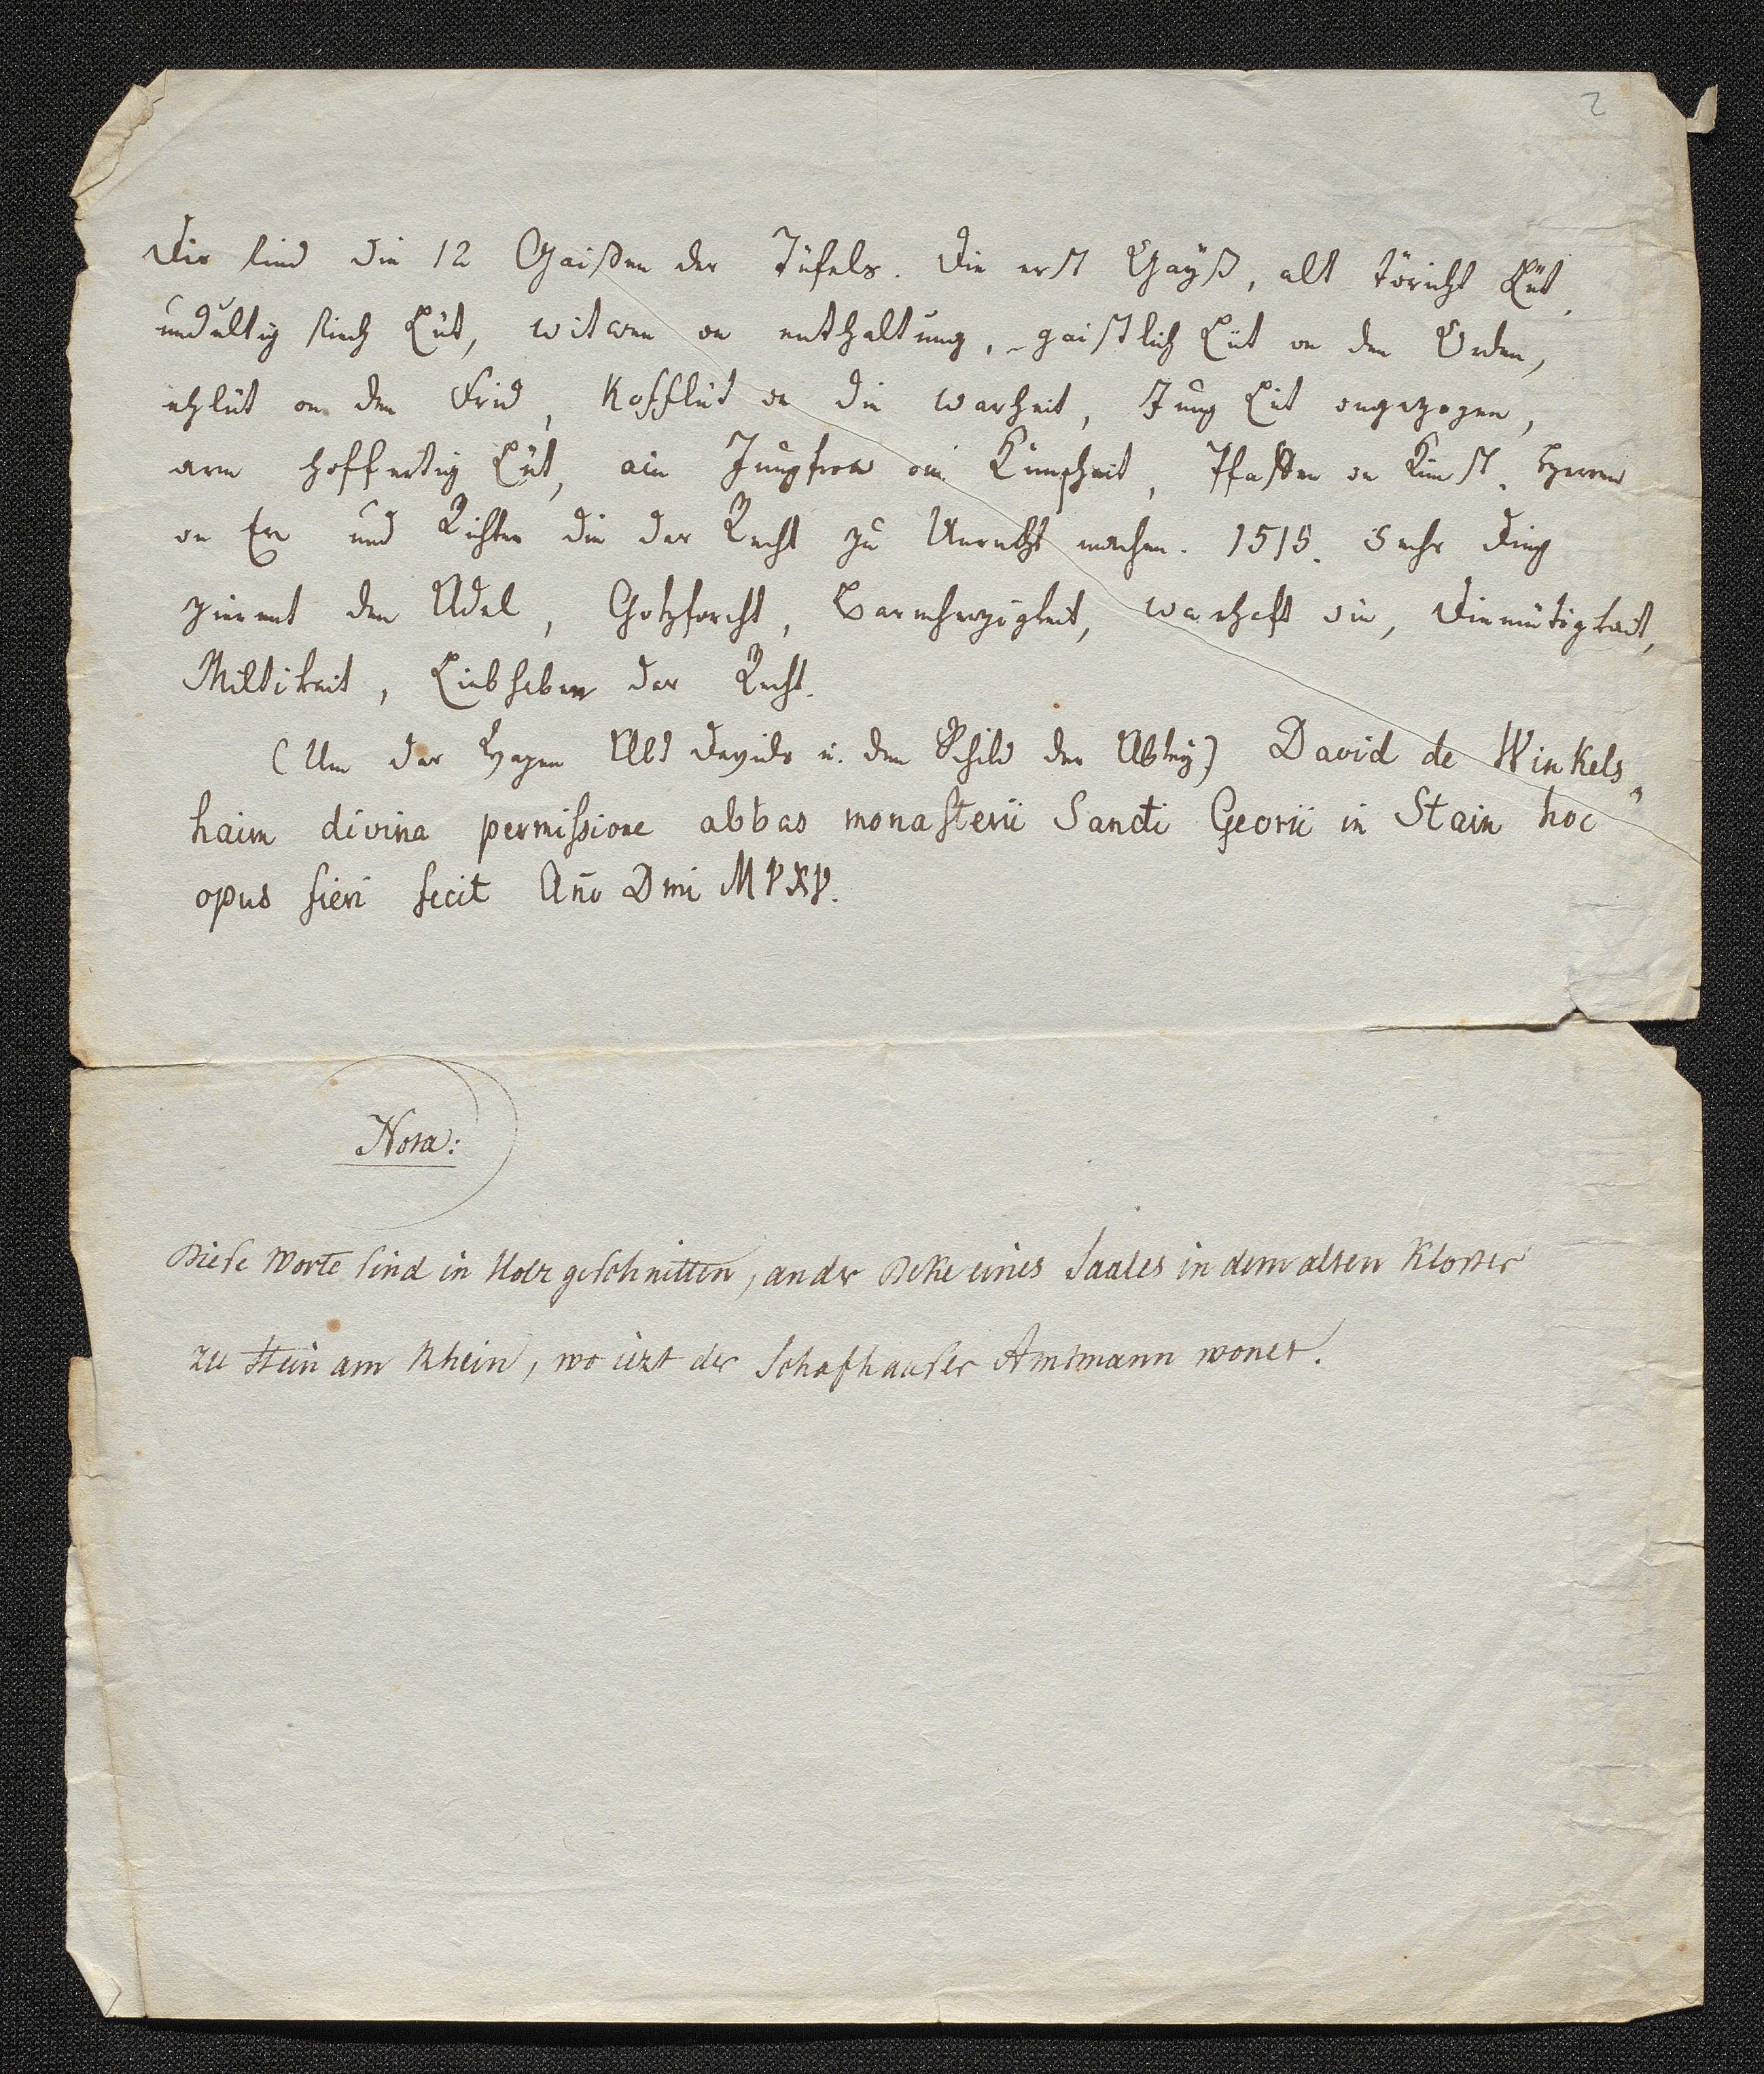 2
Dis sind die 12 Gaißen des Tüfels. Die erst Gayß, alt töricht Lüt,
undultig siech Lüt, witwen on enthaltung, gaistlich Lüt on den Orden,
ehlüt on den Frid, Kofflüt on die warheit, Jung Lüt ongezogen,
arm hoffertig Lüt, ain Jungfrow on Künscheit, Pfaffen on Kunst, Herren
on Er und Richter die das Recht zu Unrecht machen. 1515. Sechs Ding
zierent den Adel, Gotzforcht, Barmherzigkeit, warhaft sin, Diemütigkait,
Miltikeit, Liebhaben das Recht.
(Um das Wapen Abt Davids u. den Schild der Abtey) David de Winkels„
haim divina permissione abbas monasterii Sancti Georii in Stain hoc
opus fieri fecit Año Dmi MVXV.
Nota:
Diese Worte sind in Holz geschnitten, an der Deke eines Saales in dem alten Kloster
zu Stein am Rhein, wo iezt der Schafhauser Amtmann wonet.